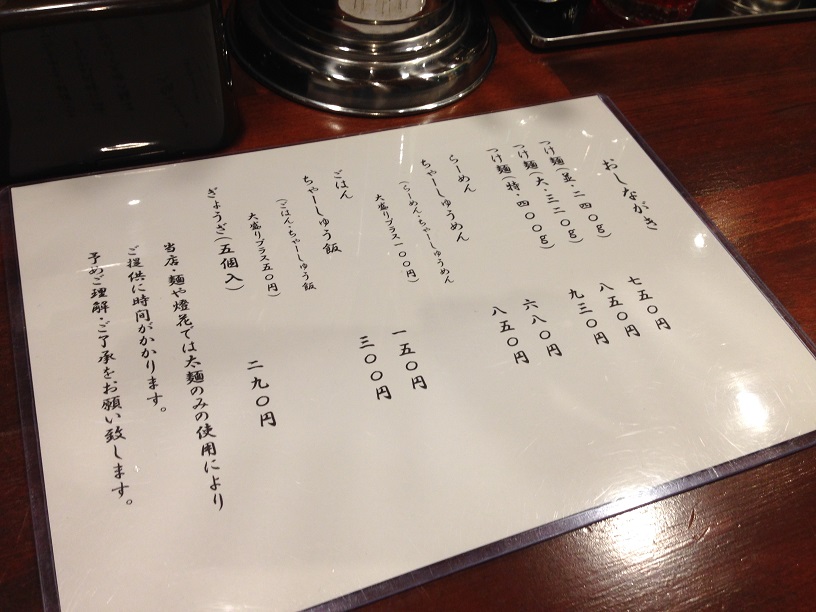 おしながき
つけ麺(並・二四〇g) 七五〇円
つけ麺(大・三二〇g) 八五〇円
つけ麺(特・四〇〇g) 九三〇円
らーめん 六八〇円
ちゃーしゅうめん 八五〇円
(らーめん・ちゃーしゅうめん
大盛りプラス一〇〇円)
ごはん 一五〇円
ちゃーしゅう飯 三〇〇円
(ごはん・ちゃーしゅう飯
大盛りプラス五〇円)
ぎょうざ(五個入) 二九〇円
当店・麺や燈花では太麺のみの使用により
ご提供に時間がかかります。
予めご理解・ご了承をお願い致します。